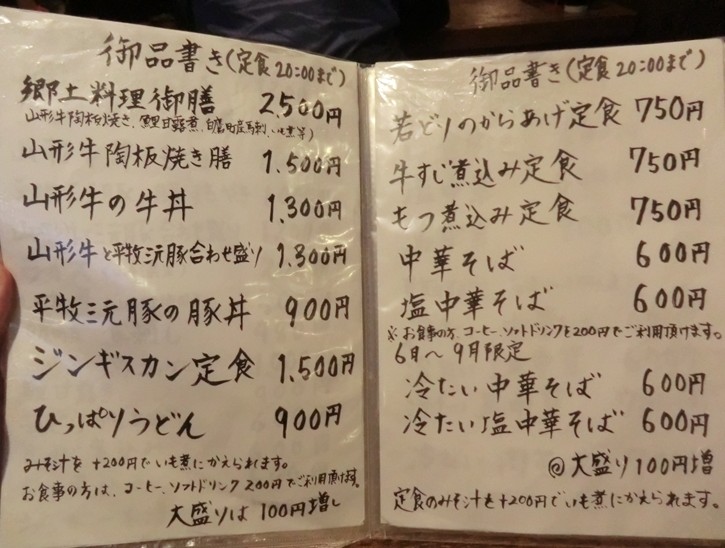 御品書き(定食20:00まで)
郷土料理御膳 2,500円
山形牛陶板焼き、鯉甘露煮、白鷹町産馬刺、いも煮等)
山形牛陶板焼き膳 1,500円
山形牛の牛丼 1,300円
山形牛と平牧三元豚合わせ盛り 1,300円
平牧三元豚の豚丼 900円
ジンギスカン定食 1,500円
ひっぱりうどん 900円
みそ汁を +200円でいも煮にかえられます。
お食事の方は、コーヒー、ソフトドリンク200円でご利用頂けます。
大盛りは100円増し
御品書き(定食20:00まで)
若どりのからあげ定食 750円
牛すじ煮込み定食 750円
もつ煮込み定食 750円
中華そば 600円
塩中華そば 600円
※お食事の方、コーヒー、ソフトドリンクを200円でご利用頂けます。
6月〜9月限定
冷たい中華そば 600円
冷たい塩中華そば 600円
@大盛り100円増
定食のみそ汁を+200円でいも煮にかえられます。